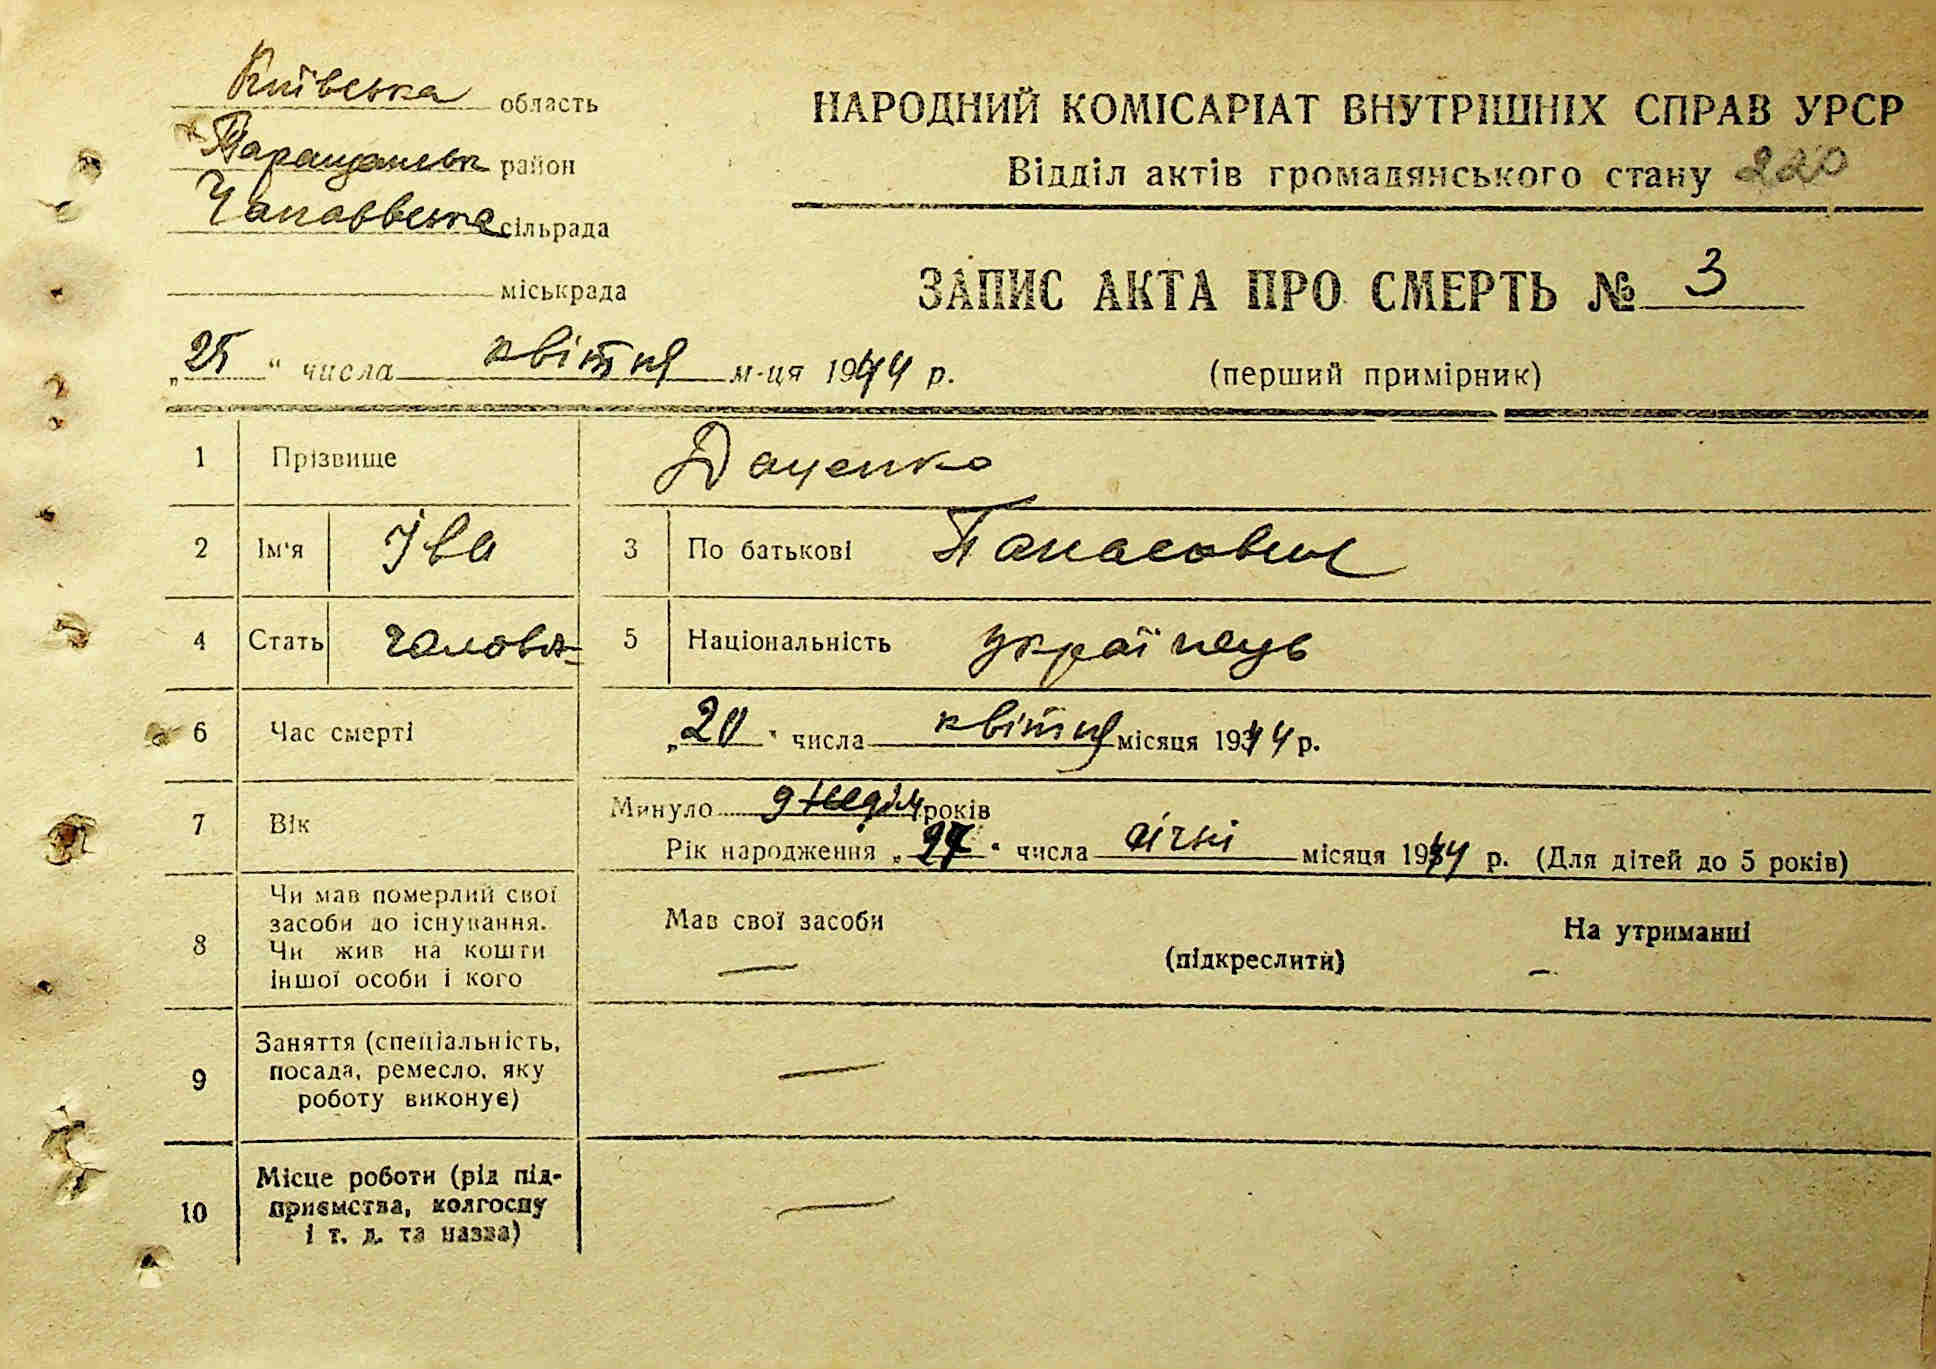 Київська область
Таращанськ район
Чапаєвська сільрада
міськрада
„25“ числа квітня м-ця 1944 р.
НАРОДНИЙ КОМІСАРІАТ ВНУТРІШНІХ СПРАВ УРСР
Відділ актів громадянського стану 220
ЗАПИС АКТА ПРО СМЕРТЬ № 3
(перший примірник)
1 Прізвище Даценко
2 Ім'я Іва 3 По батькові Панасович
4 Стать чоловіч 5 Національність українець
6 Час смерті „20“ числа квітня місяця 1944 р.
7 Вік Минуло 9 неділ років
Рік народження „27“ числа січні місяця 1944 р. (Для дітей до 5 років)
8 Чи мав померлий свої
засоби до існування.
Чи жив на кошти
іншої особи і кого
Мав свої засоби —
(підкреслити)
На утриманні —
9 Заняття (спеціальність,
посада, ремесло, яку
роботу виконує) —
10 Місце роботи (рід під-
приємства, колгоспу
і т. д. та назва) —